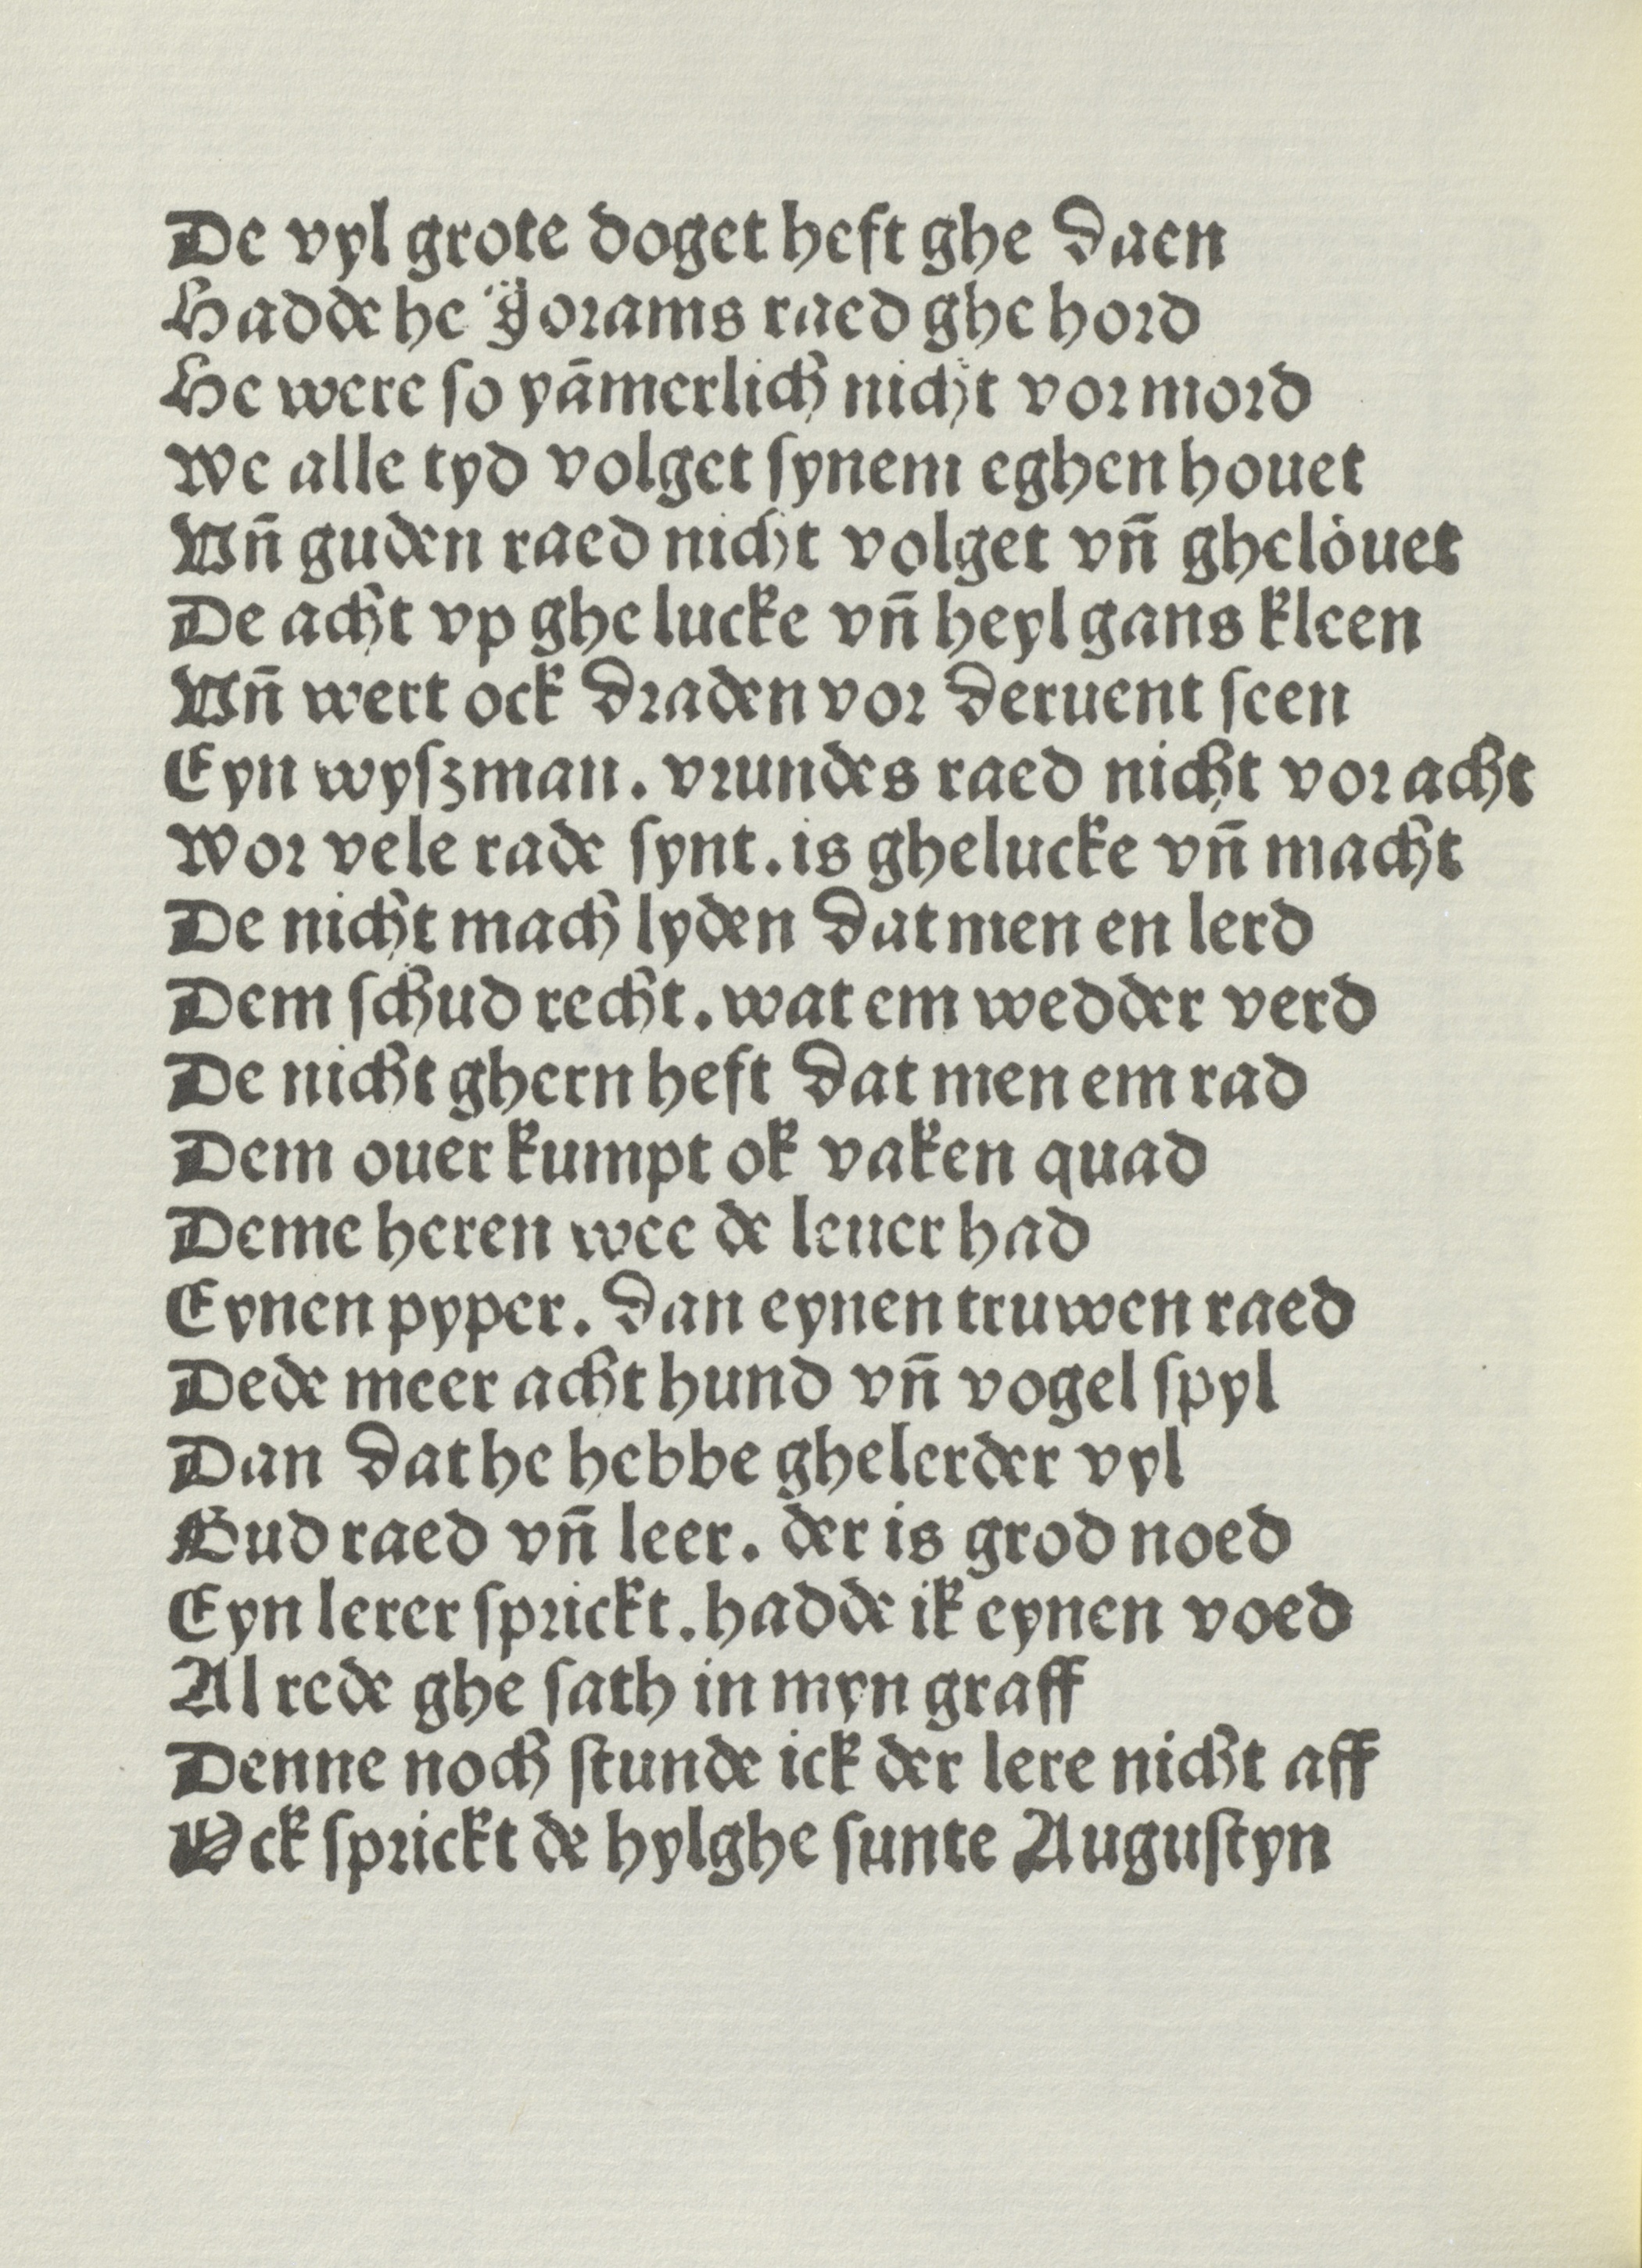 De vyl grote doget heft ghe daen
Hadde he Yorams raed ghe hord
He were so yāmerlich nicht vor mord
We alle tyd volget synem eghen houet
Vn̄ guden raed nicht volget vn̄ ghelöuet
De acht vp ghe lucke vn̄ heyl gans kleen
Vn̄ wert ock draden vor deruent seen
Eyn wyszman. vrundes raed nicht vor acht
Wor vele rade synt. is ghelucke vn̄ macht
De nicht mach lyden dat men en lerd
Dem schud recht. wat em wedder verd
De nicht ghern heft dat men em rad
Dem ouer kumpt ok vaken quad
Deme heren wee de leuer had
Eynen pyper. dan eynen truwen raed
Dede meer acht hund vn̄ vogel spyl
Dan dat he hebbe ghelerder vyl
Gud raed vn̄ leer. der is grod noed
Eyn lerer sprickt. hadde ik eynen voed
Al rede ghe sath in myn graff
Denne noch stunde ick der lere nicht aff
Ock sprickt de hylghe sunte Augustyn